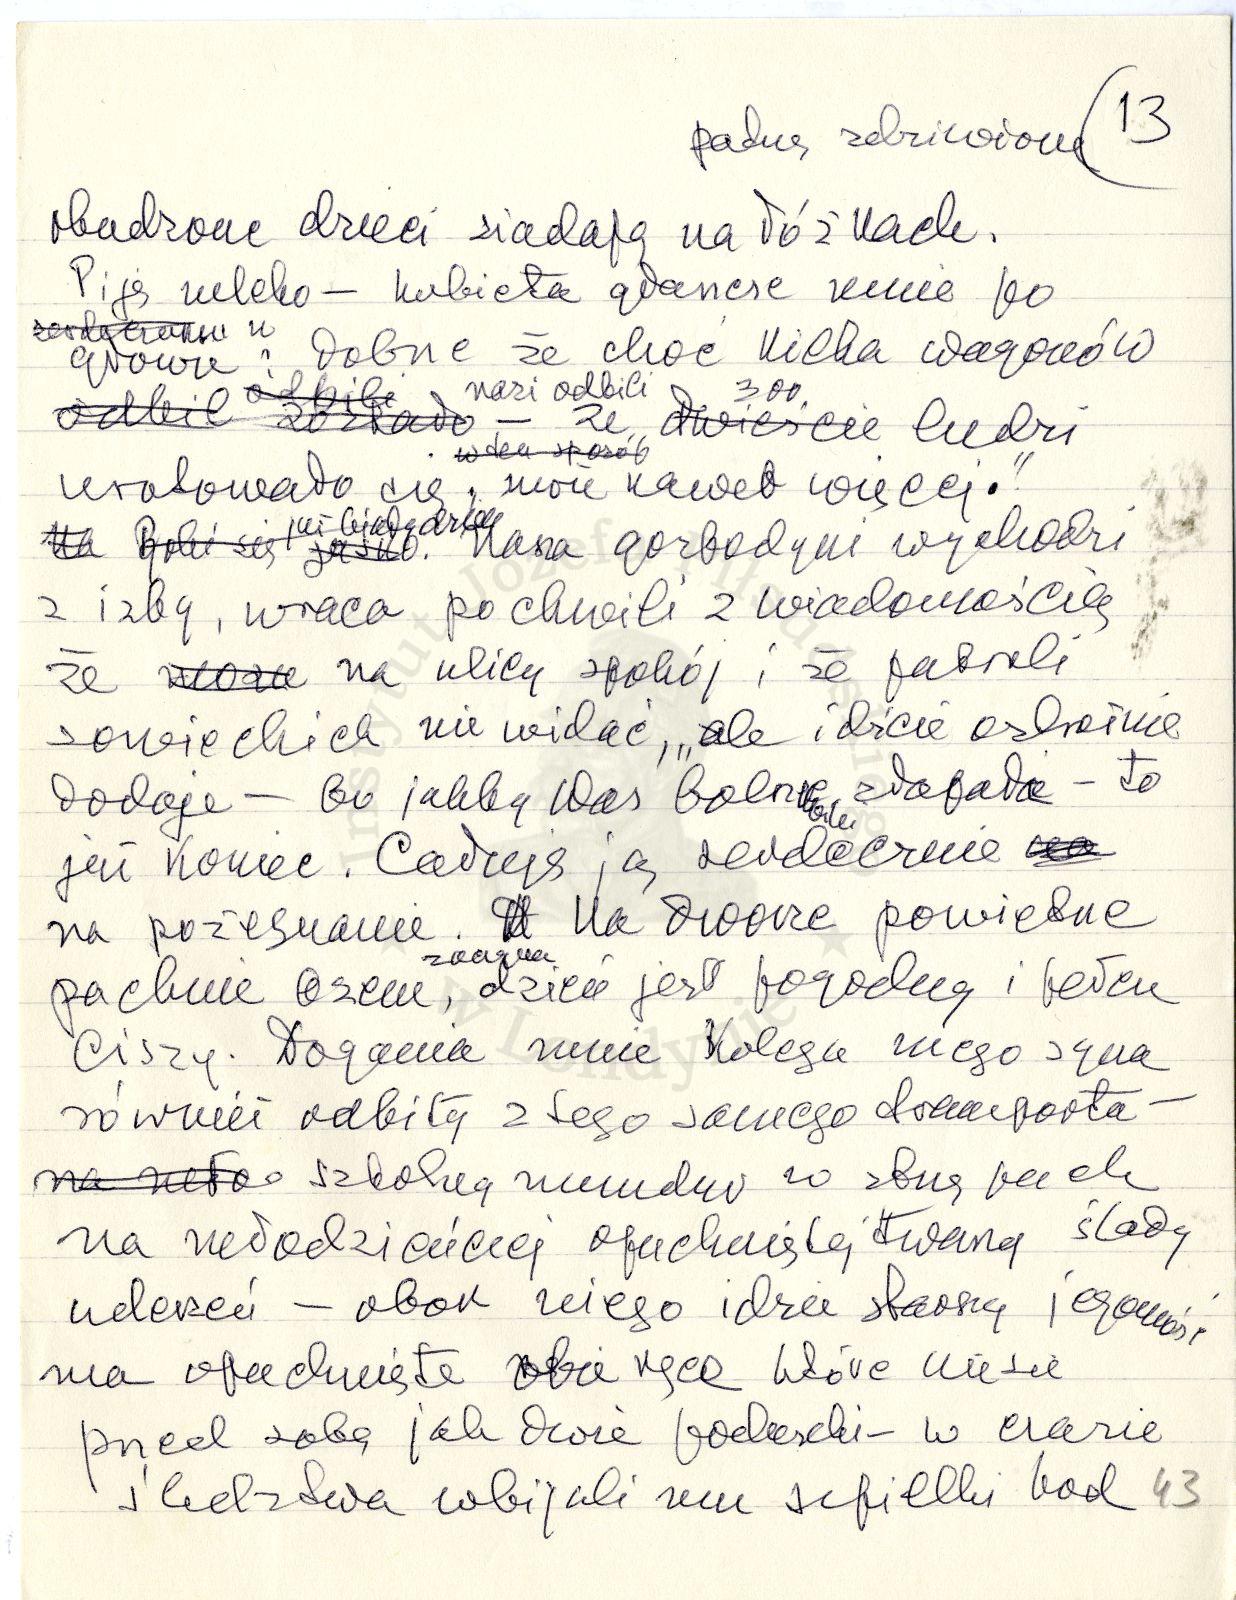 13
padną zdziwione
obudzone dzieci siadają na łóżkach.
Piję mleko – kobieta głaszcze mnie po
głowie: dobrze że choć kilka wagonów
odbil odbili zostało nasi odbili – że dwieście 300. ludzi
w ten sposób
uratowało się, może nawet więcej."
Na Robi się jasno już biały dzień. Nasza gospodyni wychodzi
z izby, wraca po chwili z wiadomością
że na ulicy spokój i że patroli
sowieckich nie widać, „ale idźcie ostrożnie
dodaje – bo jakby Was złapała – to
jest koniec. Całuję ją serdecznie na
na pożegnanie. Na dworze powietrze
pachnie bzem, dzień jest pogodny i pełen
ciszy. Dogania mnie kolega mego syna
również odbity z tego samego transportu –
na szkolny mundur w strzępach
na młodzieńczej opuchniętej twarzy ślady
uderzeń – obok niego idzie starszy jegomość
ma opuchnięte obie ręce które niesie
przed sobą jak dwie poduszki – w czasie
śledztwa wbijali mu szpilki pod
43
Instytut Józefa Piłsudskiego
w Londynie